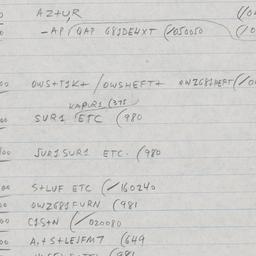 AZ+U,R
-AP/QAP G81DE4XT (/050050
OWS+T1K+ /OWSHEFT+ OWZG81HEFT(/0
KAPUR1 (375
SUR1 ETC (980
SUR1SUR1 ETC. (980
S+LUF ETC (/160240
OWZ681FURN (981
C1S+N (/020080
A,+S+LE1FM7 (649